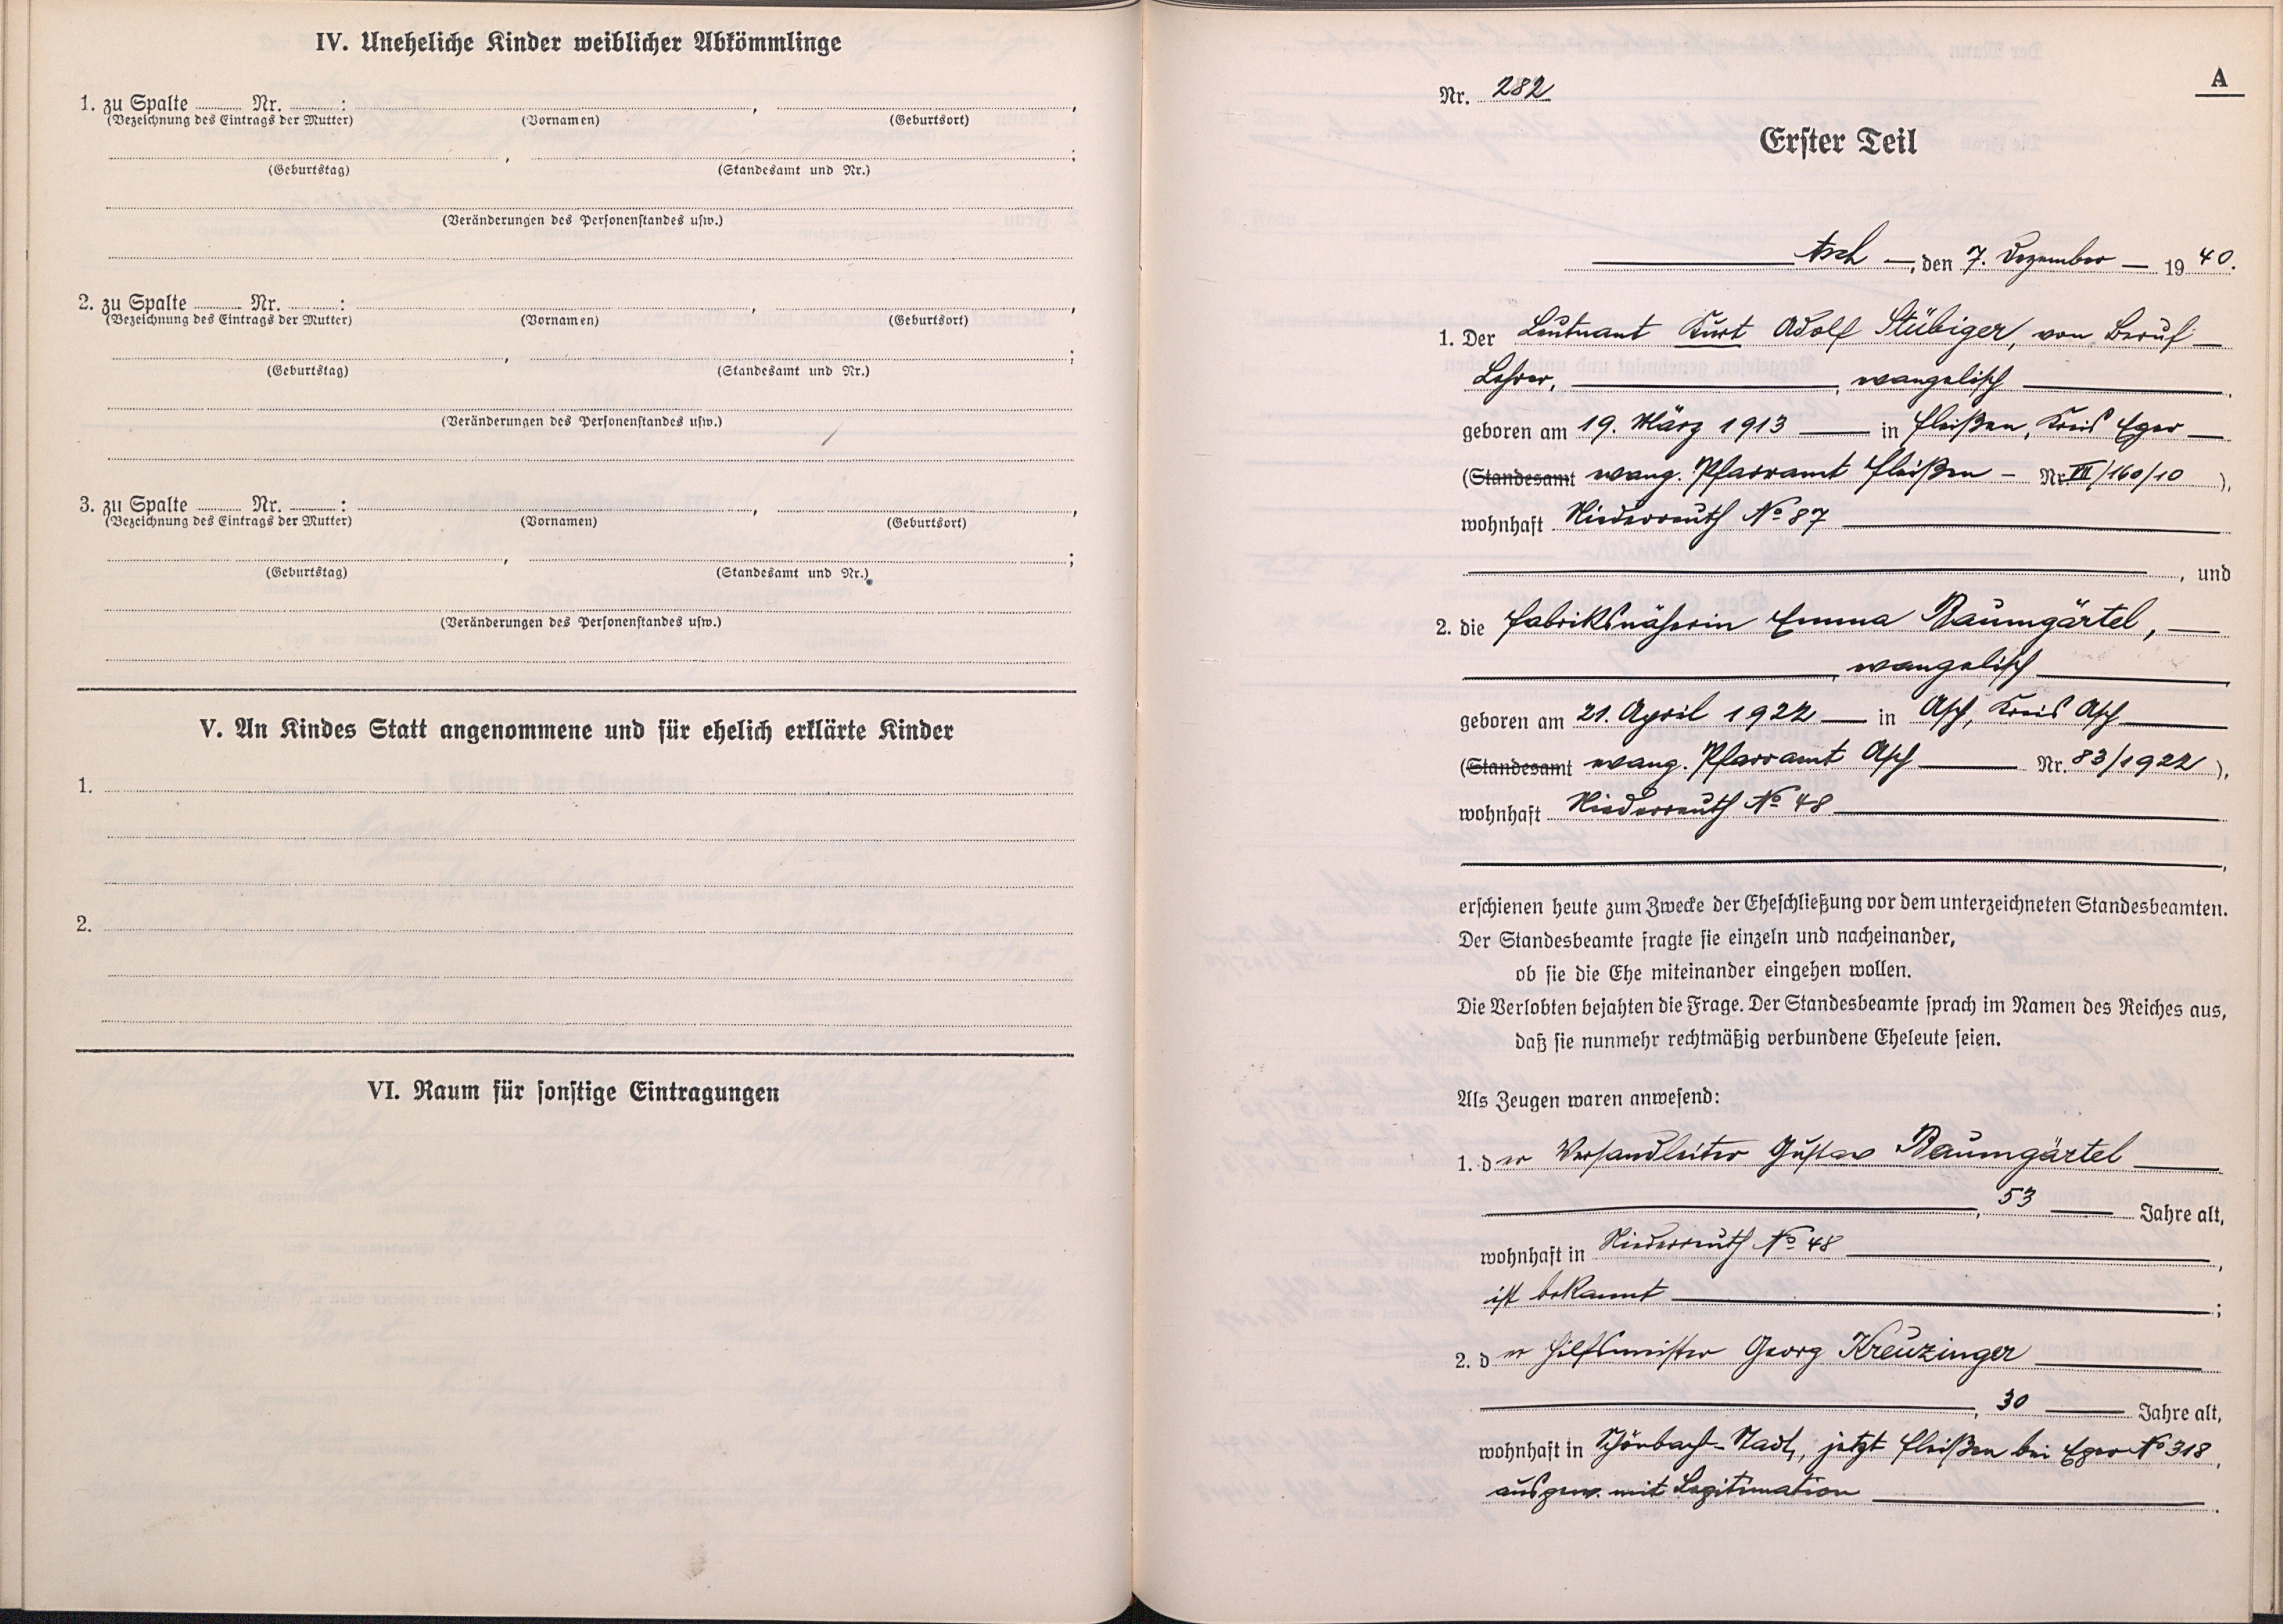 IV. Uneheliche Kinder weiblicher Abkömmlinge
1. zu Spalte ........ Nr. ........ :
(Bezeichnung des Eintrags der Mutter) (Vornamen) (Geburtsort)
(Geburtstag) (Standesamt und Nr.)
(Veränderungen des Personenstandes usw.)
2. zu Spalte ........ Nr. ........ :
(Bezeichnung des Eintrags der Mutter) (Vornamen) (Geburtsort)
(Geburtstag) (Standesamt und Nr.)
(Veränderungen des Personenstandes usw.)
3. zu Spalte ........ Nr. ........ :
(Bezeichnung des Eintrags der Mutter) (Vornamen) (Geburtsort)
(Geburtstag) (Standesamt und Nr.)
(Veränderungen des Personenstandes usw.)
V. An Kindes Statt angenommene und für ehelich erklärte Kinder
1.
2.
VI. Raum für sonstige Eintragungen
A
Nr. 282
Erster Teil
Asch —, den 7. Dezember — 19 40.
1. Der Leutnant Kurt Adolf Stübiger, von Beruf —
Lehrer, ———, evangelisch ———,
geboren am 19. März 1913 — in Fleißen, Kreis Eger —
(Standesamt evang. Pfarramt Fleißen — Nr. VII/160/10 ),
wohnhaft Niederreuth No 87 ———
———, und
2. die Fabriksnäherin Emma Baumgärtel, —
———, evangelisch ———,
geboren am 21. April 1922 — in Asch, Kreis Asch ———
(Standesamt evang. Pfarramt Asch ——— Nr. 83/1922 ),
wohnhaft Niederreuth No 48 ———
———,
erschienen heute zum Zwecke der Eheschließung vor dem unterzeichneten Standesbeamten.
Der Standesbeamte fragte sie einzeln und nacheinander,
ob sie die Ehe miteinander eingehen wollen.
Die Verlobten bejahten die Frage. Der Standesbeamte sprach im Namen des Reiches aus,
daß sie nunmehr rechtmäßig verbundene Eheleute seien.
Als Zeugen waren anwesend:
1. der Versandleiter Gustav Baumgärtel ———
———, 53 ——— Jahre alt,
wohnhaft in Niederreuth No 48 ———,
ist bekannt ———;
2. der Hilfsmeister Georg Kreuzinger ———
———, 30 ——— Jahre alt,
wohnhaft in Schönbach-Stadt, jetzt Fleißen bei Eger No 318,
ausgew. mit Legitimation ———.